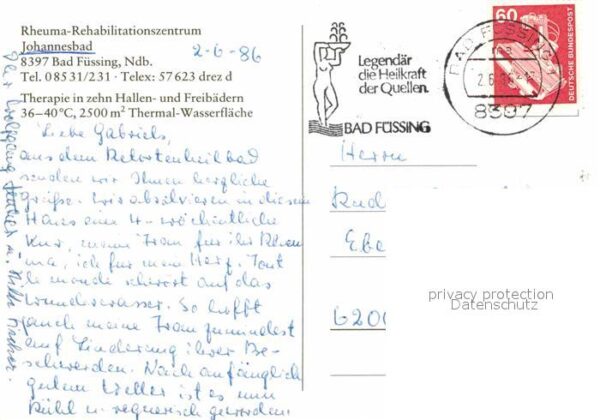 Rheuma-Rehabilitationszentrum
Johannesbad
8397 Bad Füssing, Ndb.
Tel. 08531/231 · Telex: 57623 drez d
Therapie in zehn Hallen- und Freibädern
36-40°C, 2500 m² Thermal-Wasserfläche
2-6-86
Liebe Gabriels,
aus dem Retortenheilbad
senden wir Ihnen herzliche
Grüße. Wir absolvieren in diesem
Haus eine 4-wöchentliche
Kur, meine Frau für ihr Rheu
ma, ich für mein Herz. Tout
le monde schwört auf das
Wunderwasser. So hofft
auch meine Frau zumindest
auf Linderung ihrer Be-
schwerden. Nach anfänglich
gutem Wetter ist es nun
kühl u. regnerisch geworden.
Ihr Wolfgang u.
Legendär
die Heilkraft
der Quellen.
BAD FÜSSING
BAD FÜSSING 1
2.6.86
8397
60
DEUTSCHE BUNDESPOST
Herrn
Rud
Ebe
6200
privacy protection
Datenschutz